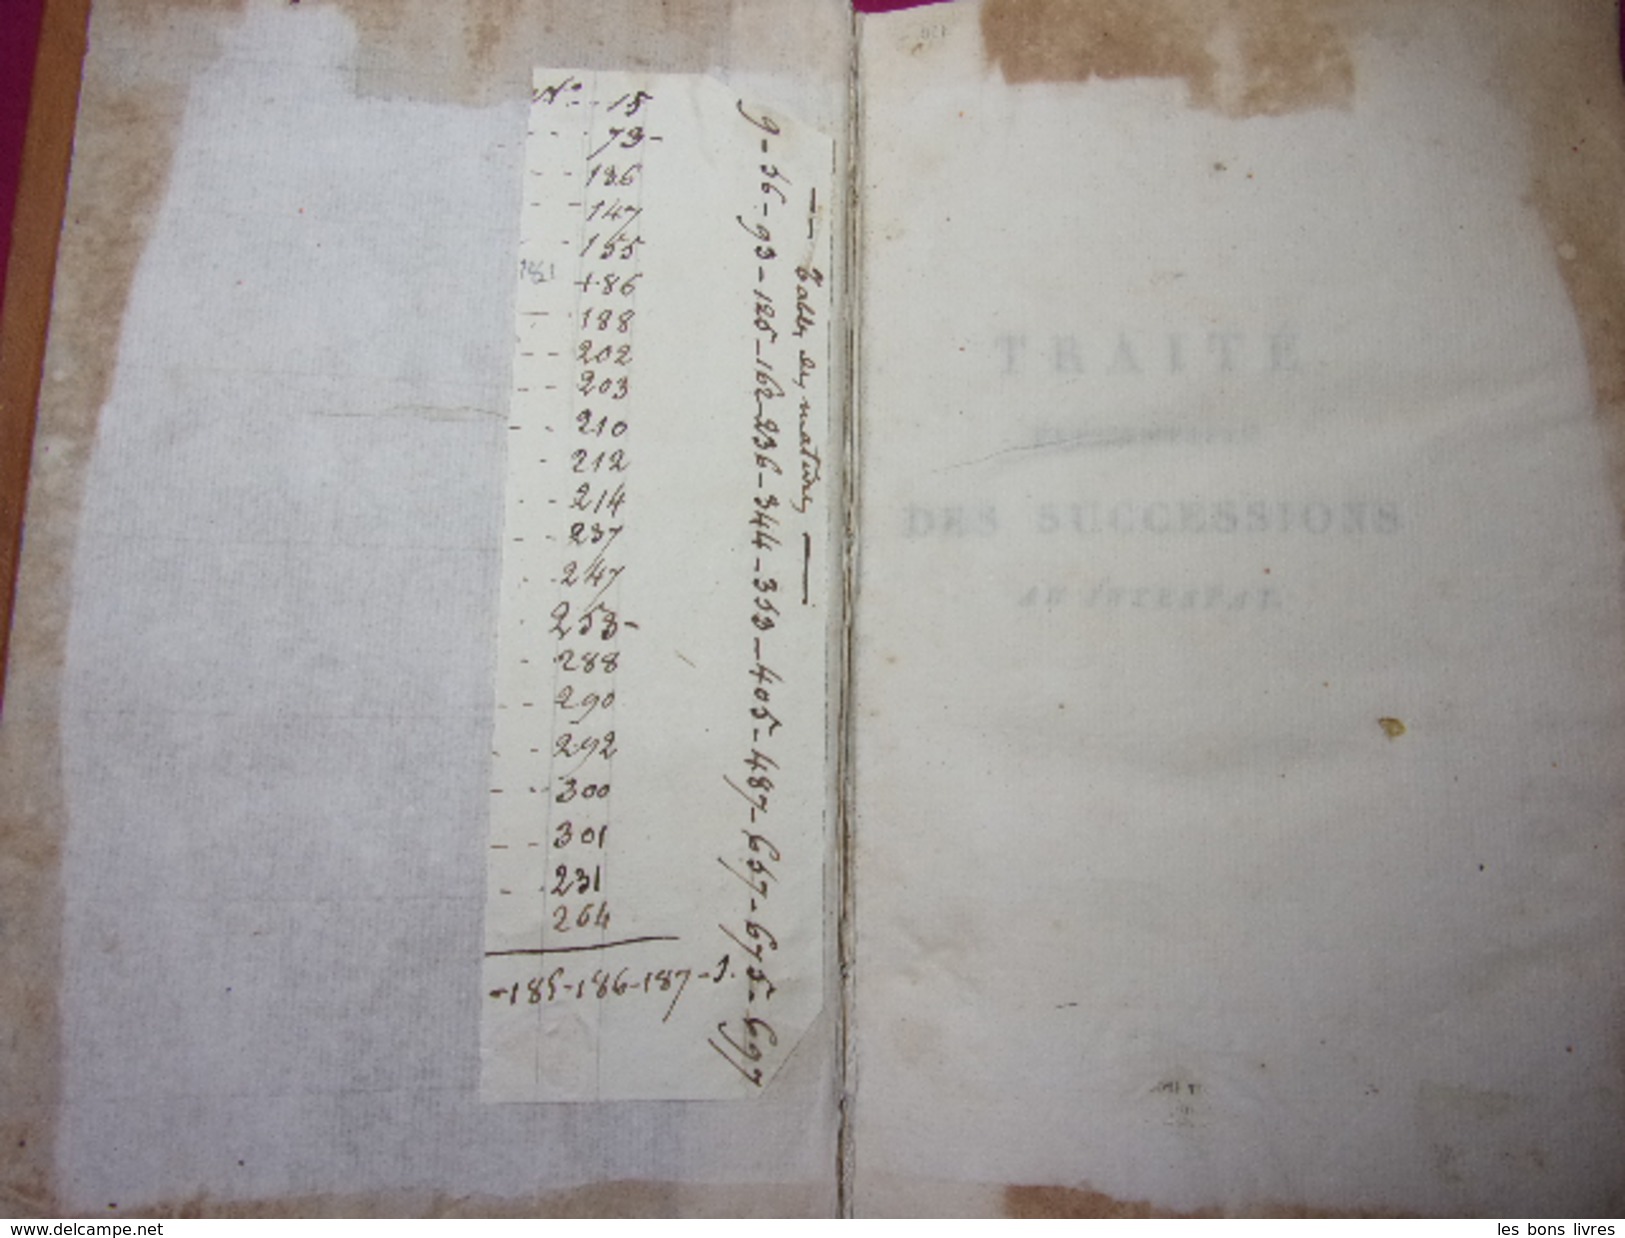 N° - - 15
- - - 73 -
- - 136
- - 147
- 155
186
188
- - 202
- - 203
- - 210
- 212
- - 214
- - 237
- 247
253 -
- 288
- - 290
- - 292
- - 300
- - 301
- - 231
264
- 185 - 186 - 187 - J.
9 - 36 - 93 - 125 - 162 - 236 - 344 - 353 - 405 - 487 - 657 - 675 - 697
— Table des matières —
TRAITÉ
DES SUCCESSIONS
AB INTESTAT.
www.delcampe.net
les bons livres